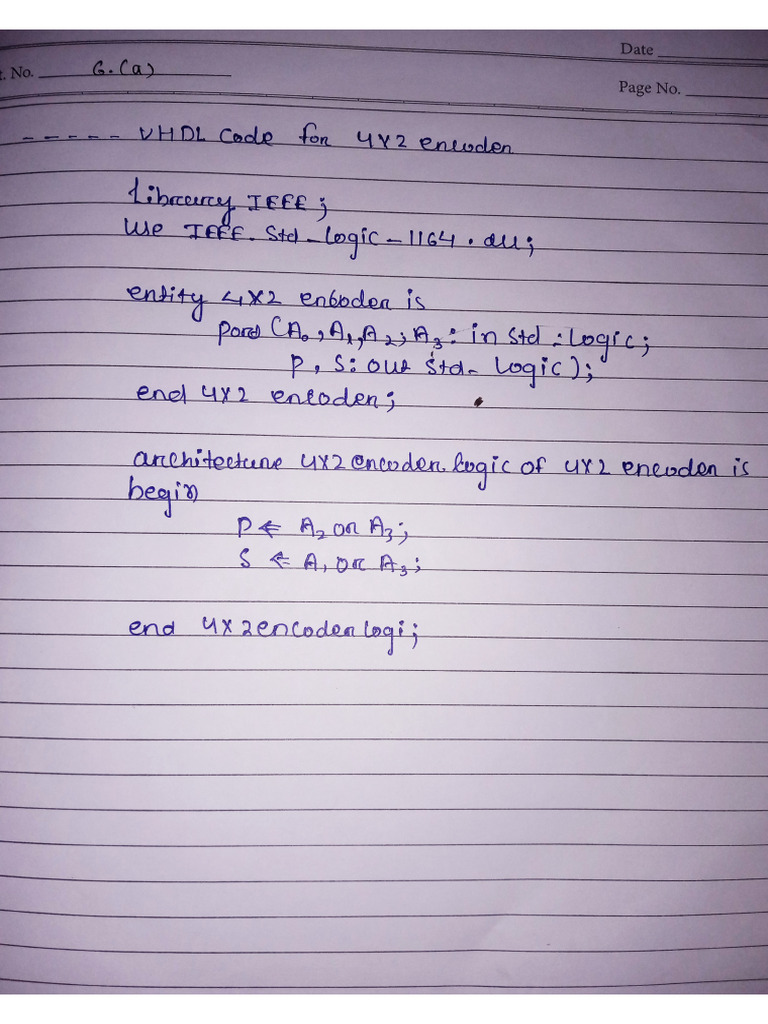 Date
t. No. 6.(a)
Page No.
----- VHDL Code for 4X2 encoder
Library IEEE;
Use IEEE.Std_Logic_1164.all;
entity 4X2 encoder is
port (A0, A1, A2, A3: in std_Logic;
P, S: out std_Logic);
end 4X2 encoder;
architecture 4X2 encoder logic of 4X2 encoder is
begin
P <= A2 or A3;
S <= A1 or A3;
end 4X2encoder logi;